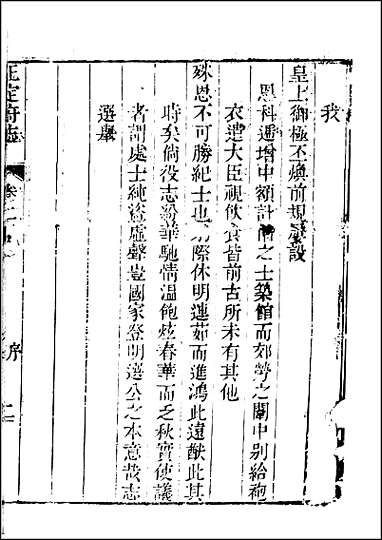 我
皇上御極丕煥前規廣設
恩科遞增中額計偕之士築館而郊勞之闈中別給袍
衣遣大臣視飲食皆前古所未有其他
殊恩不可勝紀士也際休明連茹而進鴻此遠猷此其
時矣倘役志紛華馳情溫飽炫春華而乏秋實使議
者謂處士純盜虛聲豈國家登明選公之本意哉志
選舉
正定府志 卷二 序 二